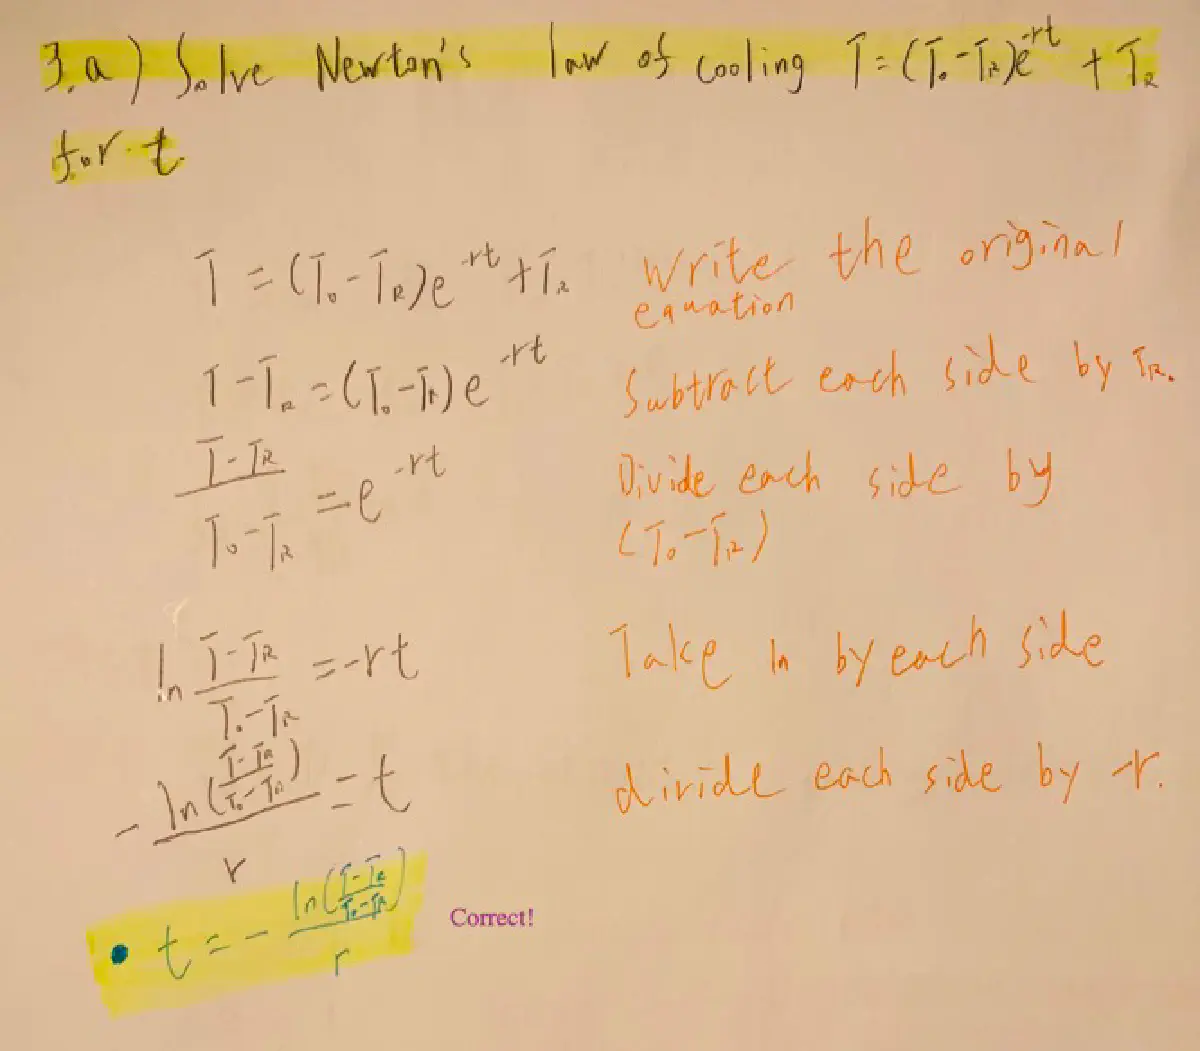 3.a) Solve Newton's law of cooling T=(T₀-T_R)e^-rt +T_R
for t.
T=(T₀-T_R)e^-rt+T_R Write the original
equation
T-T_R=(T₀-T_R)e^-rt Subtract each side by T_R.
(T-T_R)/(T₀-T_R)=e^-rt Divide each side by
(T₀-T_R)
ln (T-T_R)/(T₀-T_R)=-rt Take ln by each side
-ln((T-T_R)/(T₀-T_R))/r=t divide each side by -r.
• t=-ln((T-T_R)/(T₀-T_R))/r Correct!